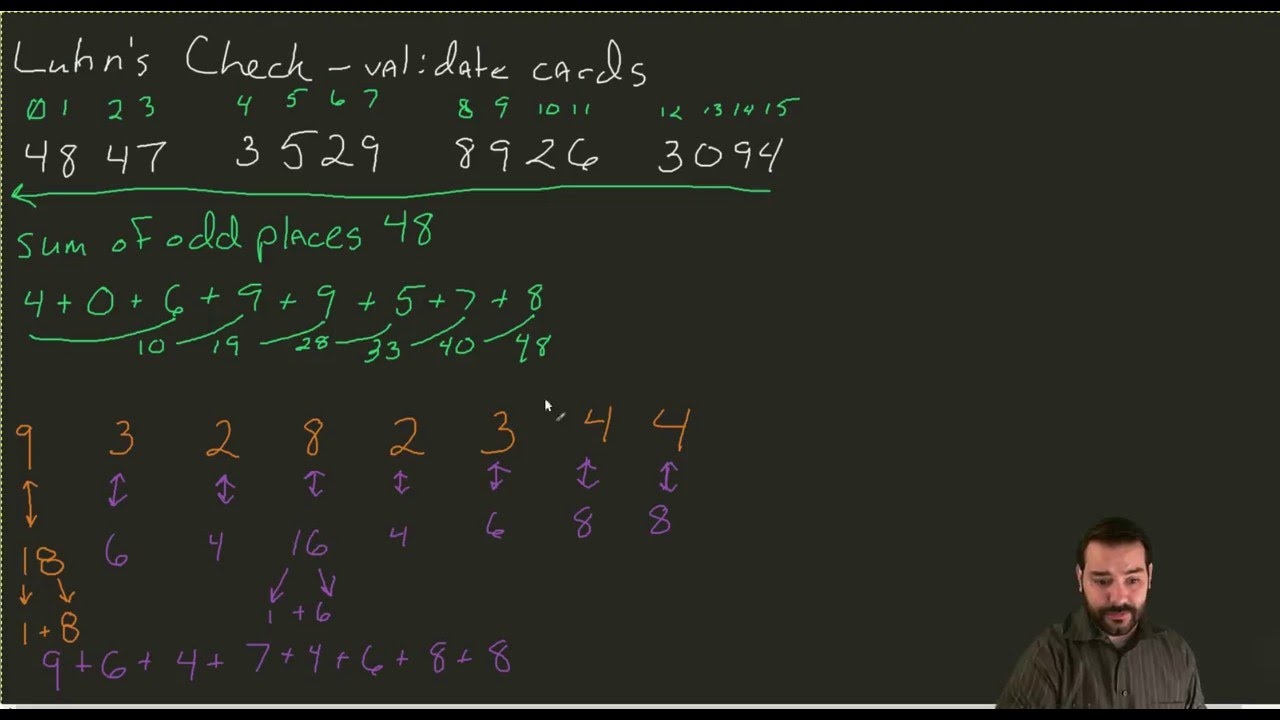 Luhn's Check - validate cards
0 1 2 3 4 5 6 7 8 9 10 11 12 13 14 15
48 47 3529 8926 3094
sum of odd places 48
4 + 0 + 6 + 9 + 9 + 5 + 7 + 8
10 19 28 33 40 48
9 3 2 8 2 3 4 4
18 6 4 16 4 6 8 8
1 + 8 1 + 6
9 + 6 + 4 + 7 + 4 + 6 + 8 + 8